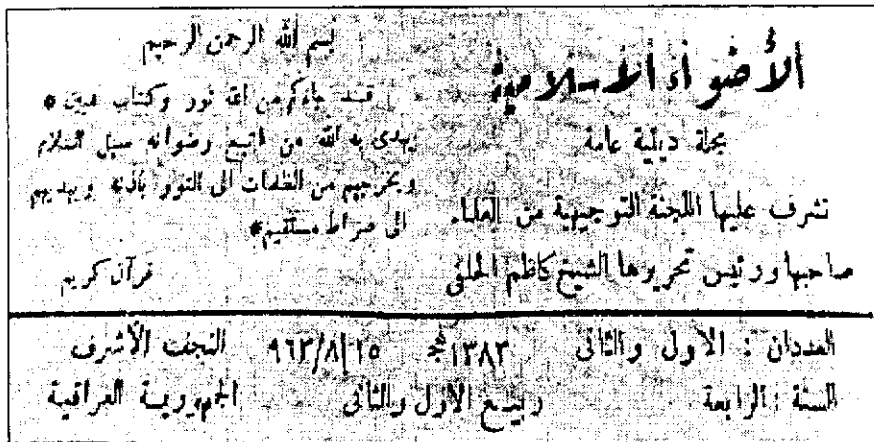 الأضواء الاسلامية
مجلة دينية عامة
تشرف عليها اللجنة التوجيهية من العلماء
صاحبها ورئيس تحريرها الشيخ كاظم الحلفي
بسم الله الرحمن الرحيم
قد جاءكم من الله نور وكتاب مبين *
يهدى به الله من اتبع رضوانه سبل السلام
ويخرجهم من الظلمات الى النور باذنه ويهديهم
الى صراط مستقيم *
قرآن كريم
العددان : الاول والثانى ١٣٨٣ هج ١٥/٨/٩٦٣ النجف الأشرف
السنة : الرابعة ربيع الاول والثانى الجمهورية العراقية